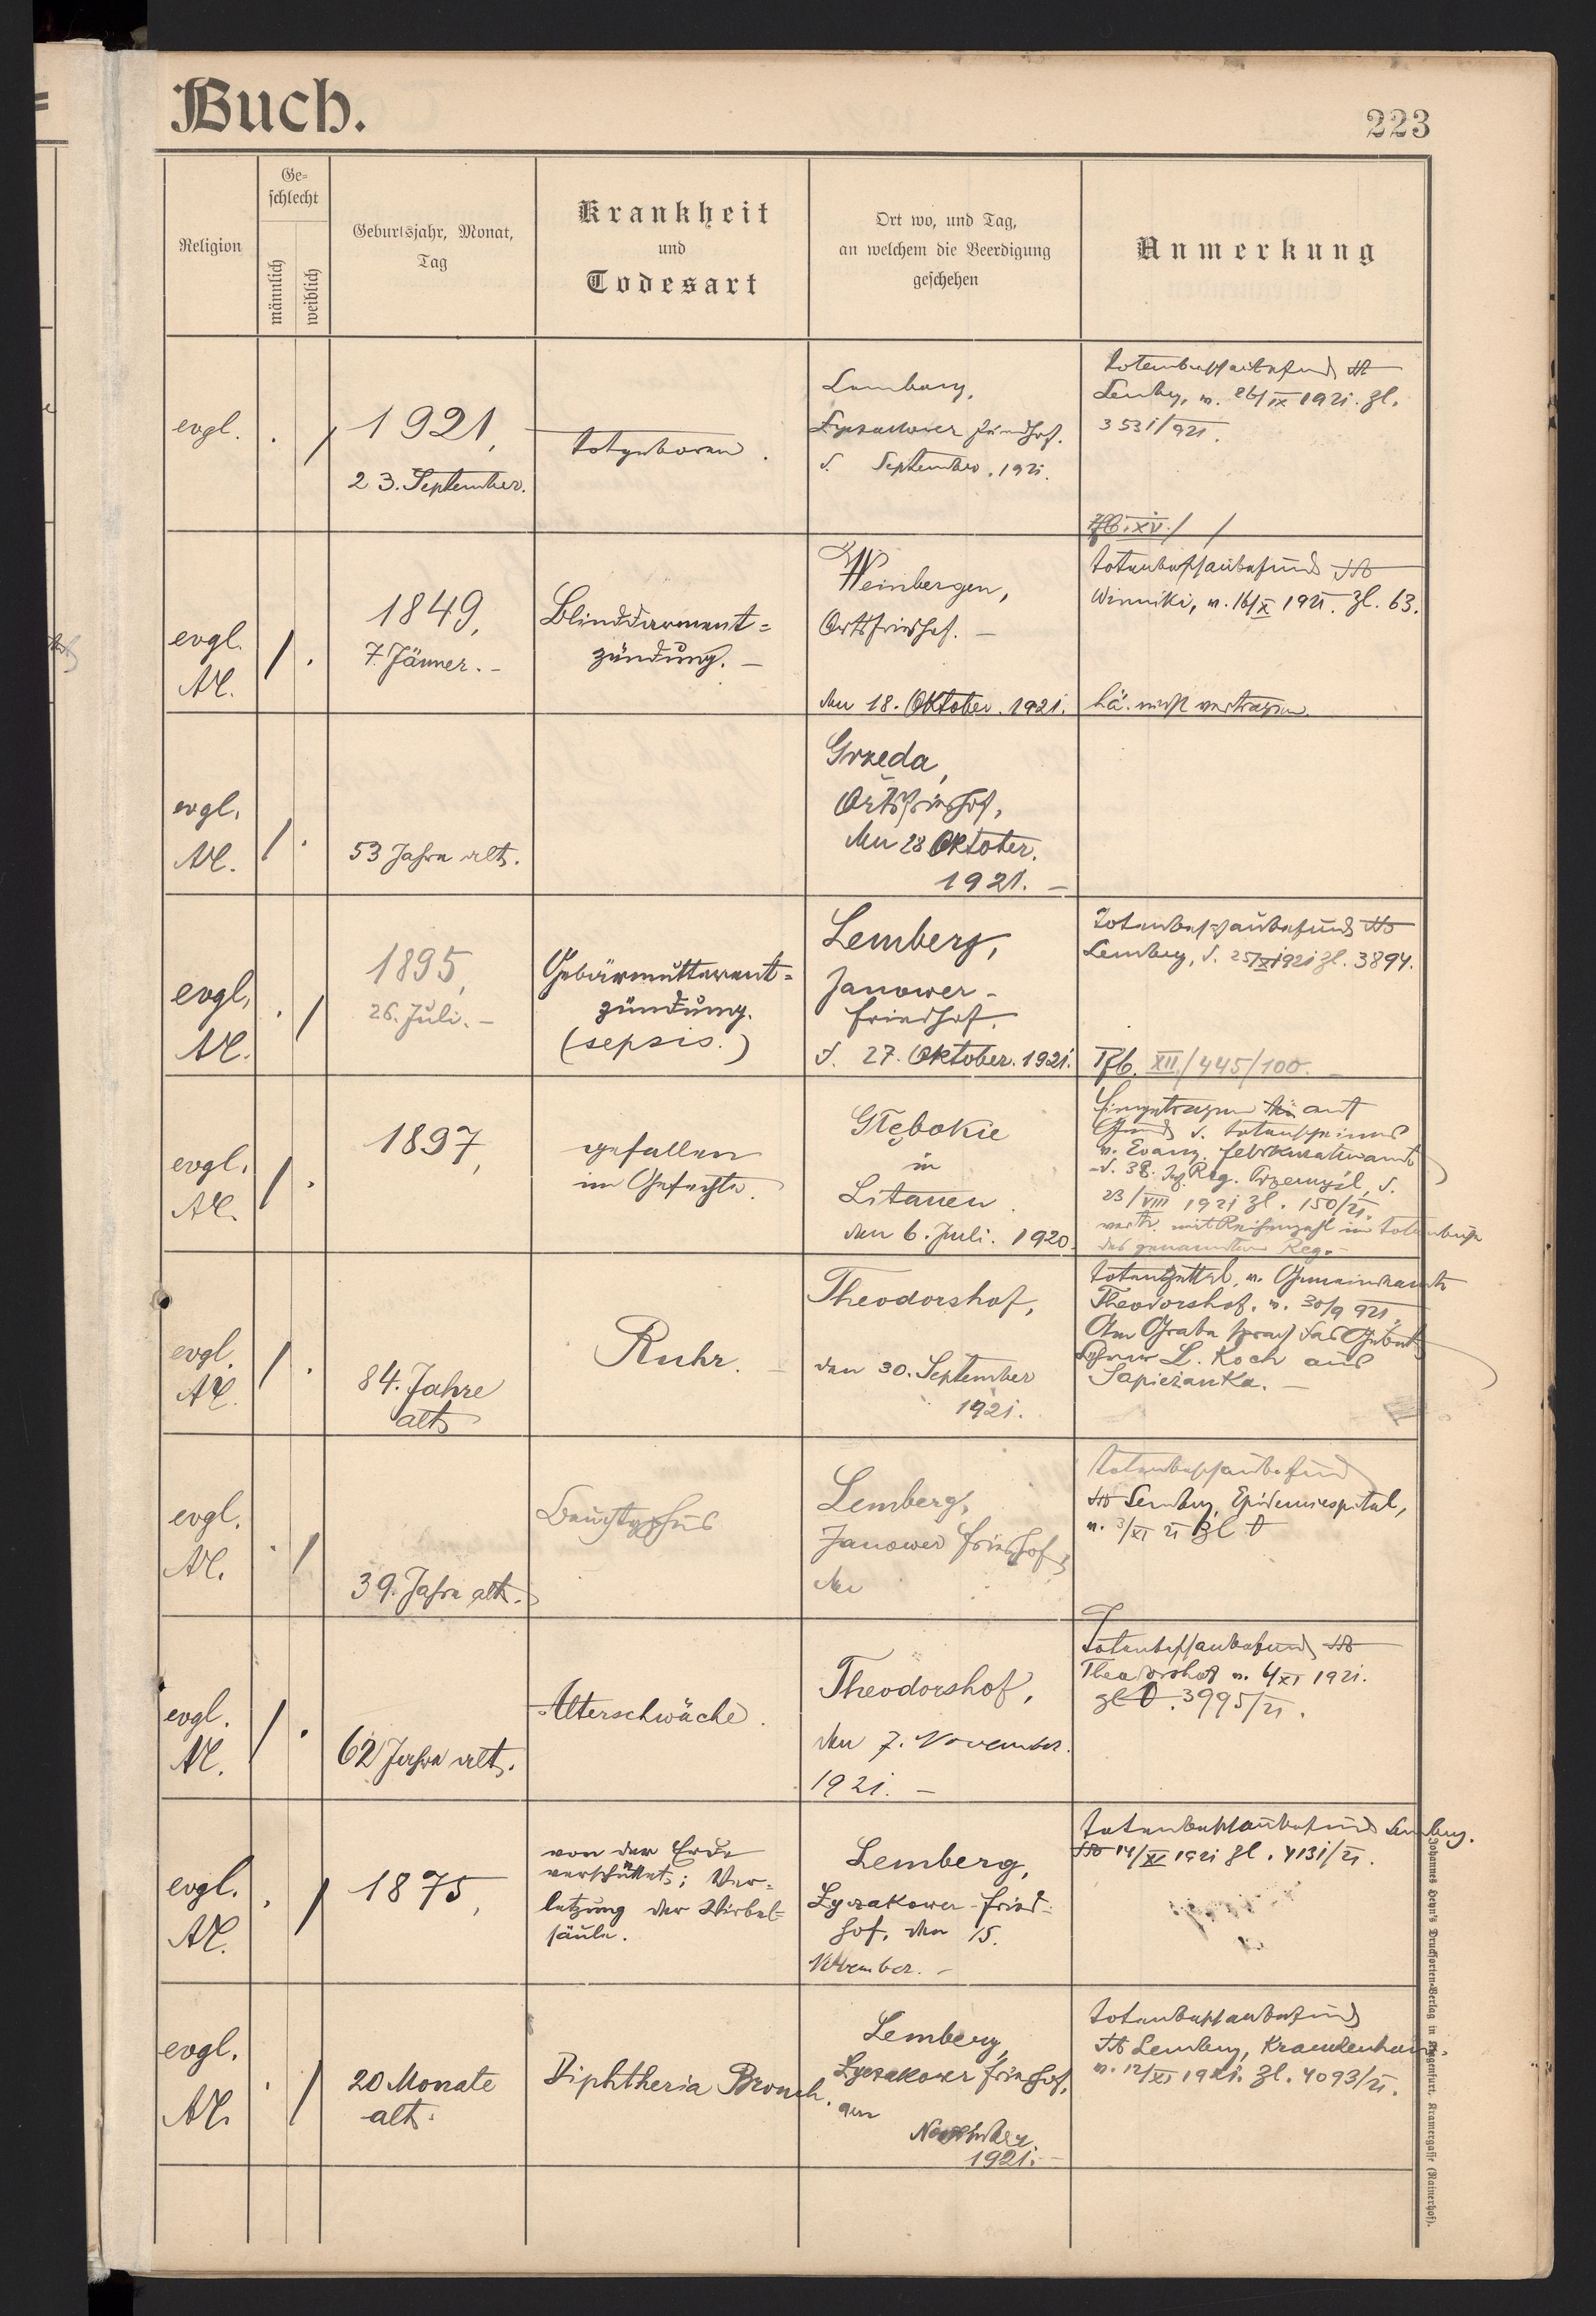 Buch.
223
Religion
Ge-
schlecht
männlich
weiblich
Geburtsjahr, Monat,
Tag
Krankheit
und
Todesart
Ort wo, und Tag,
an welchem die Beerdigung
geschehen
Anmerkung
evgl.
. /
1921,
23. September.
totgeboren.
Lemberg,
Lyczakower Friedhof.
d. September. 1921.
Totenbeschaubefund
Lemberg, v. 26/IX 1921. Zl.
3531/921.
Tfb. XV. / /
evgl.
AC.
/ .
1849,
7. Jänner. –
Blinddarment=
zündung. –
Weinbergen,
Ortsfriedhof. –
den 18. Oktober. 1921.
Totenbeschaubefund
Winniki, v. 16/X 1921. Zl. 63.
evgl.
AC.
/ .
53 Jahre alt.
Grzeda,
Ortsfriedhof,
den 28 Oktober.
1921. –
evgl.
AC.
. /
1895,
26. Juli. –
Gebärmutterent=
zündung.
(sepsis.)
Lemberg,
Janower-
friedhof.
d. 27. Oktober. 1921.
Totenbeschaubefund
Lemberg, d. 25/X 1921 Zl. 3894.
Tfb. XII./445/100. –
evgl.
AC.
/ .
1897,
gefallen
im Gefechte.
Głębokie
in
Litauen.
den 6. Juli. 1920.
Eingetragen auf
Grund d. Totenscheines
v. Evang. Feldkuratenamt
d. 38. Inf. Reg. Przemyśl, d.
23/VIII 1921 Zl. 150/21.
mit Reihenzahl im Totenbuche
des genannten Reg. –
evgl.
AC.
/ .
84. Jahre
alt
Ruhr. –
Theodorshof,
den 30. September
1921.
Totenzettel, v. Gemeindeamte
Theodorshof. v. 30/9 921.
Am Grabe sprach das Gebet
Lehrer L. Koch aus
Sapieżanka. –
evgl.
AC.
. /
39. Jahre alt.
Bauchtyphus
Lemberg,
Janower friedhof,
den
Totenbeschaubefund
Lemberg, Epidemiespital,
v. 3/XI 21 Zl
evgl.
AC.
/ .
62 Jahre alt.
Alterschwäche.
Theodorshof,
den 7. November.
1921. –
Totenbeschaubefund
Theodorshof v. 4/XI 1921.
Zl. 3995/21.
evgl.
AC.
. /
1875,
von der Erde
verschüttet; Ver=
letzung der Wirbel=
säule.
Lemberg,
Lyczakower-fried-
hof, den 15.
November. –
Totenbeschaubefund Lemberg.
14/XI 1921 Zl. 4131/21.
evgl.
AC.
. /
20 Monate
alt.
Diphtheria Bronch.
Lemberg,
Lyczakower friedhof,
am
November
1921. –
Totenbeschaubefund
Lemberg, Krankenhaus.
v. 12/XI 1921. Zl. 4093/21.
Johannes Heyn's Drucksorten-Verlag in Klagenfurt, Kramergasse (Rainerhof).